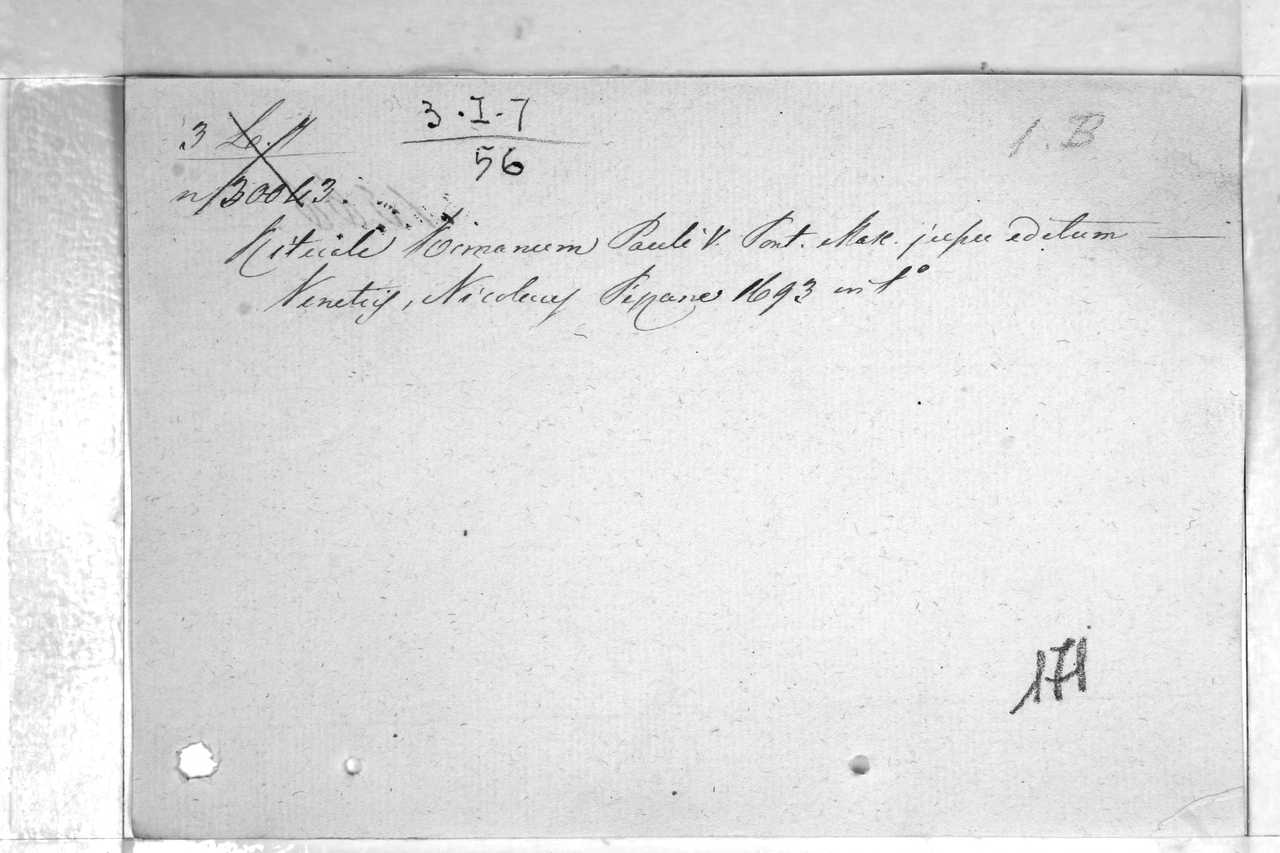 3 · I - 7
56
1. B
n/30043.
Rituale Romanum Pauli V. Pont. Max. jussu editum
Venetijs, Nicolaus Pezzana 1693 in f°
171